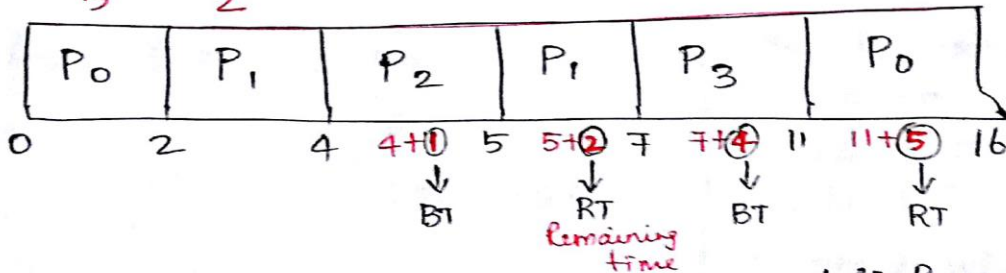 2
P0 P1 P2 P1 P3 P0
0 2 4 4+1 5 5+2 7 7+4 11 11+5 16
BT RT BT RT
Remaining
time